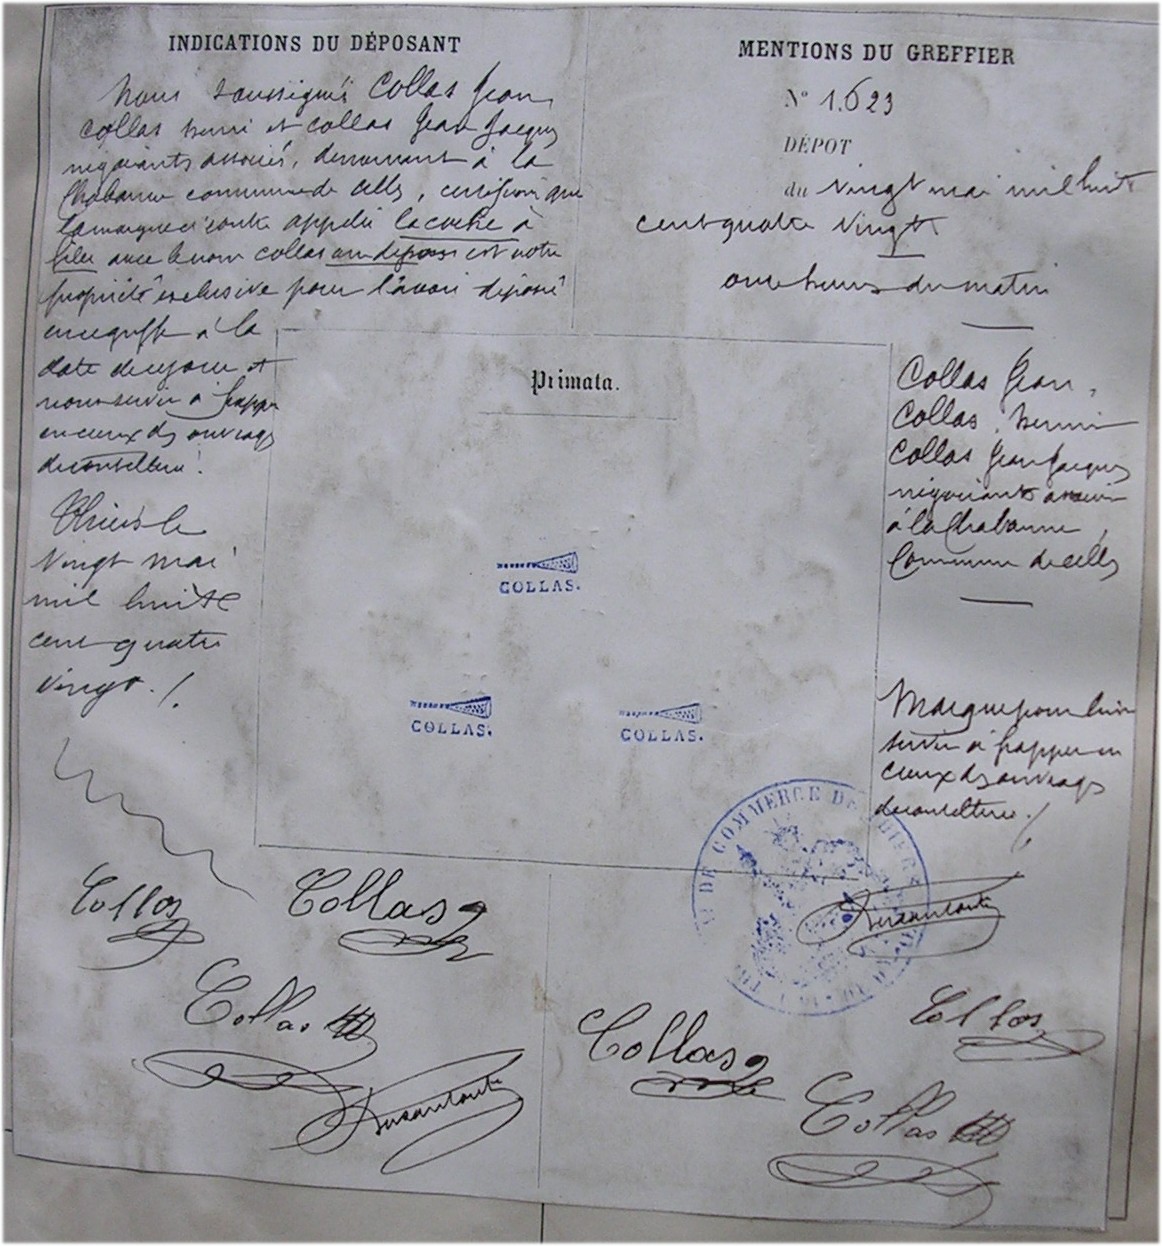 INDICATIONS DU DÉPOSANT
Nous soussignés Collas Jean
Collas henri et Collas Jean Jacques
négociants associés, demeurant à la
Chabanne commune de Celles, certifions que
la marque ci contre appelée la
avec le nom collas est notre
propriété exclusive pour l'avoir déposé
au greffe à la
date de ce jour et
à frapper
en creux des ouvrages
de coutellerie.
Thiers le
vingt mai
mil huit
cent quatre
vingt./.
MENTIONS DU GREFFIER
N° 1.623
DÉPOT
du vingt mai mil huit
cent quatre vingt
onze heures du matin
Primata.
COLLAS.
COLLAS.
COLLAS.
Collas Jean,
Collas, henri
Collas Jean Jacques
négociants associés
à la Chabanne,
Commune de Celles
Marque pour
servir à frapper en
creux des ouvrages
de coutellerie./
DE COMMERCE DE THIERS
Collas
Collas
Collas
Collas
Collas
Collas